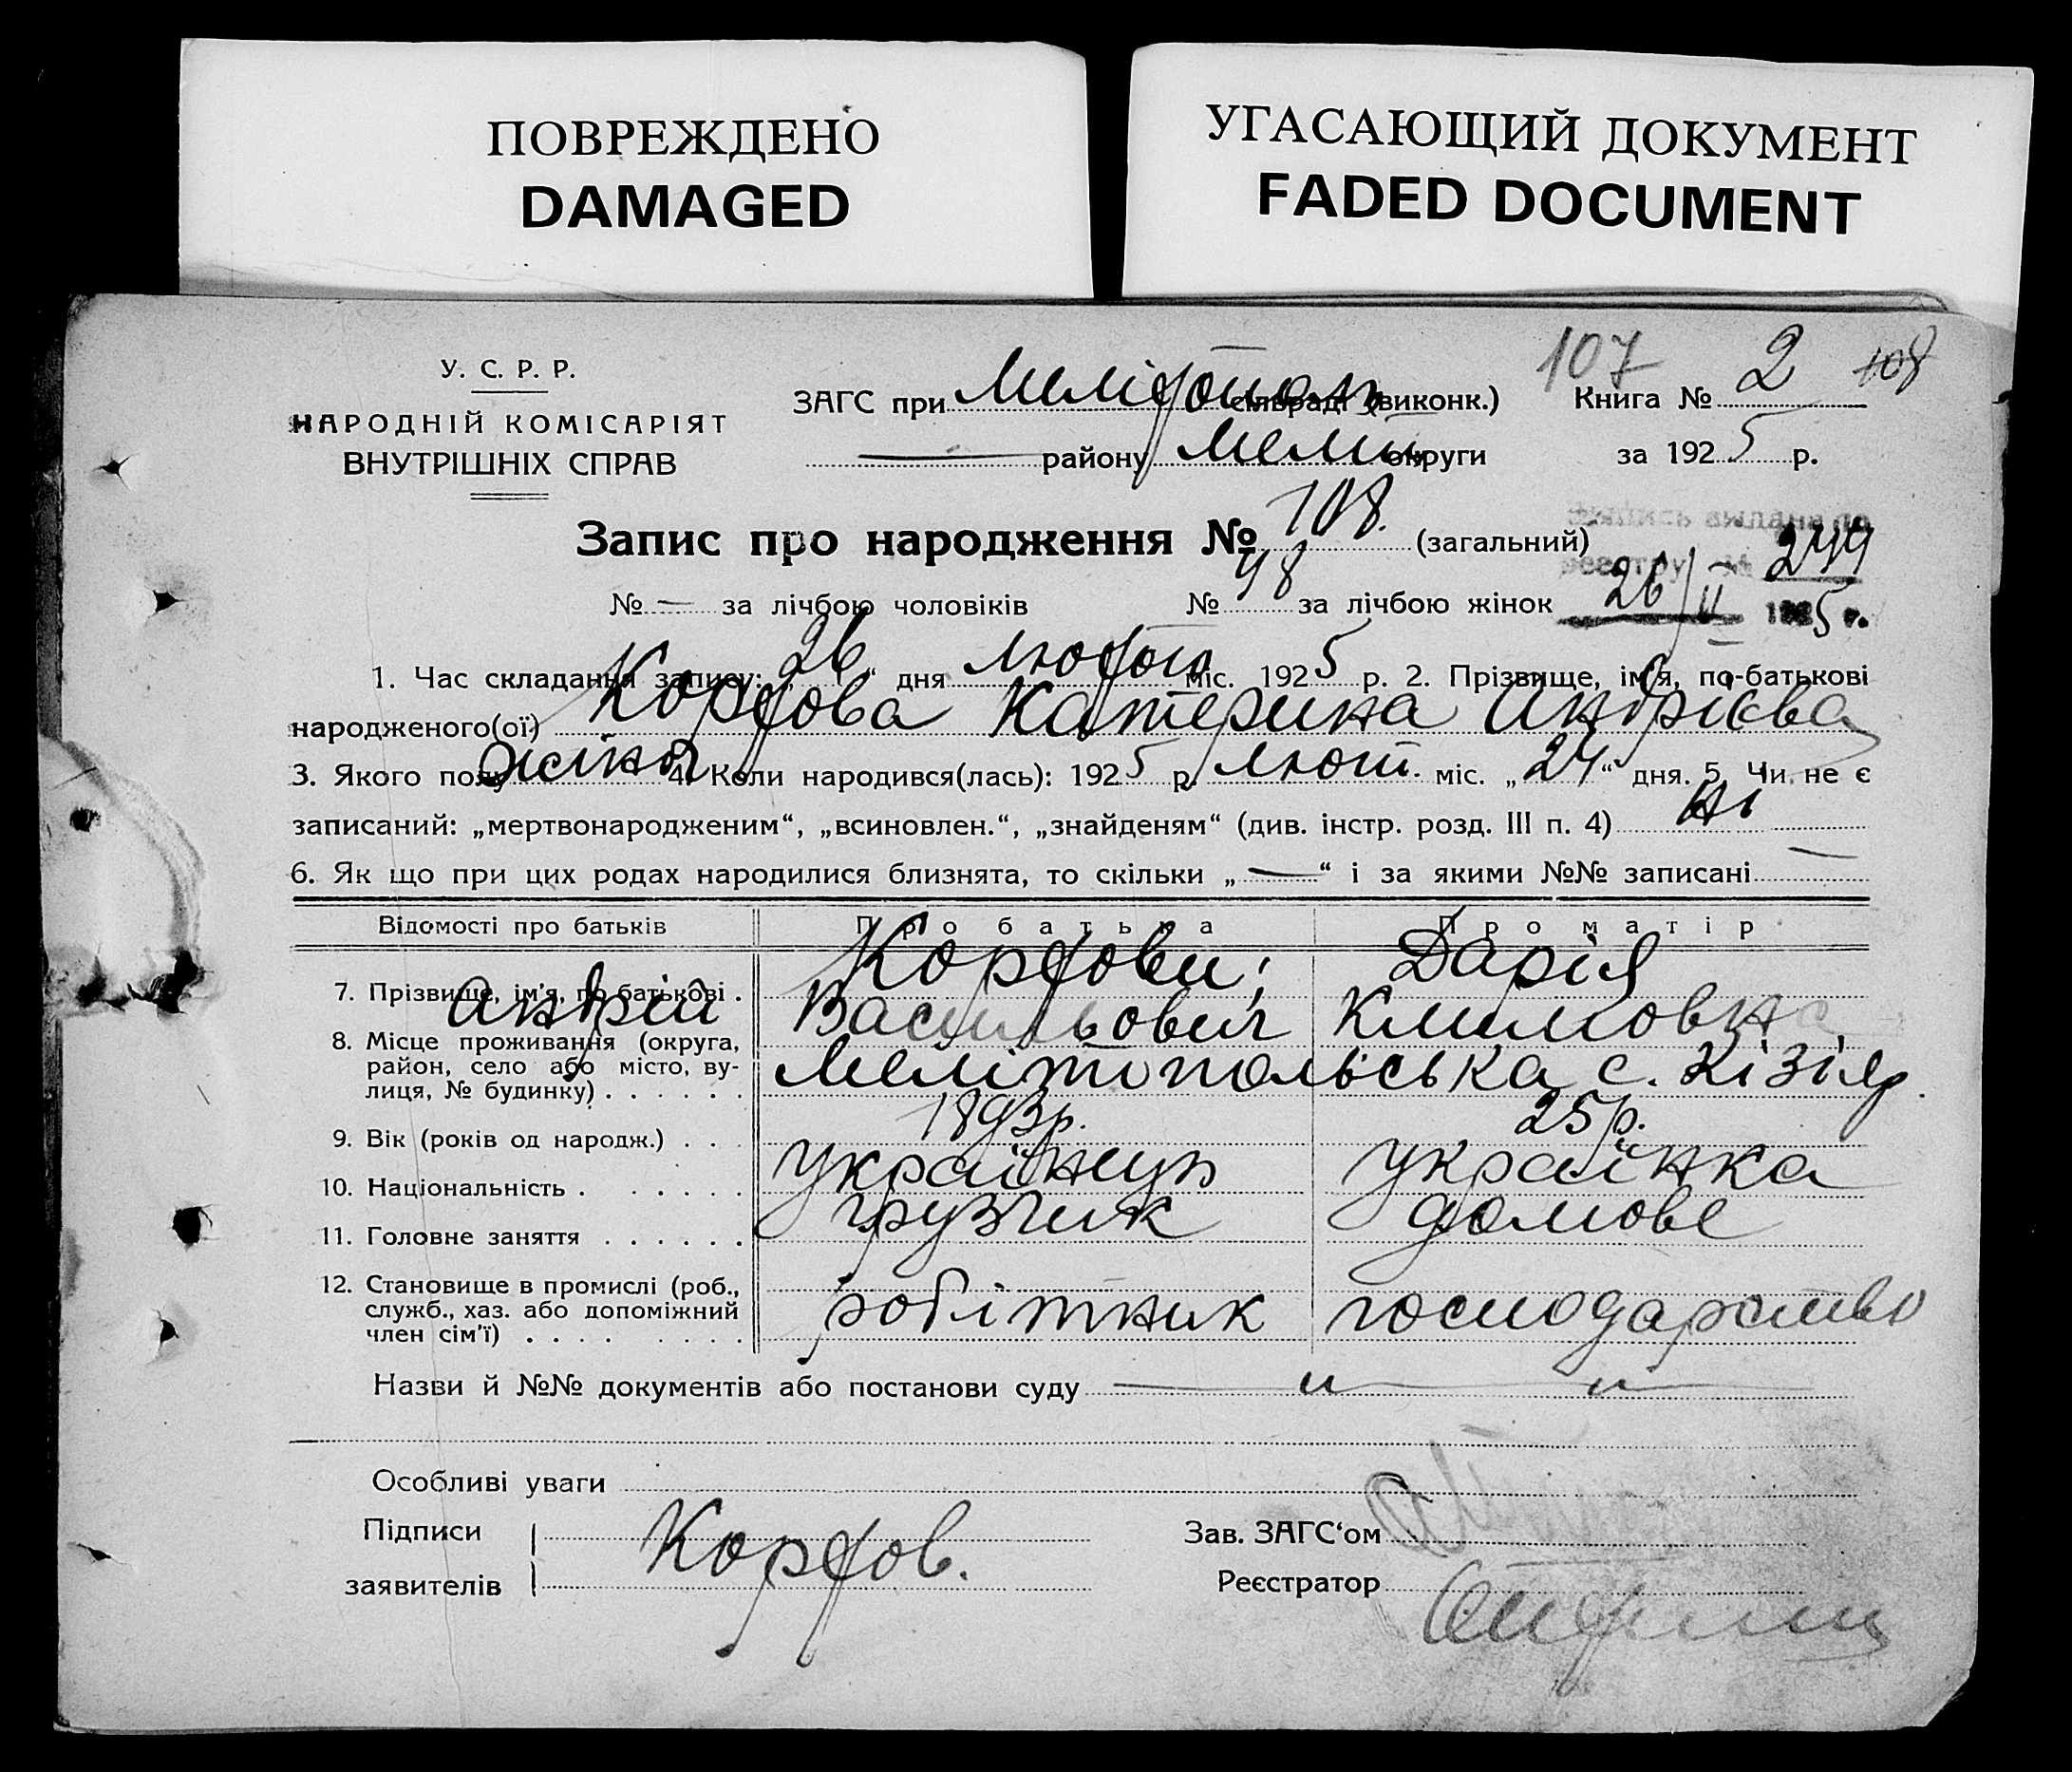 ПОВРЕЖДЕНО
DAMAGED
УГАСАЮЩИЙ ДОКУМЕНТ
FADED DOCUMENT
107 108
У. С. Р. Р.
НАРОДНІЙ КОМІСАРІЯТ
ВНУТРІШНІХ СПРАВ
ЗАГС при сільраді (виконк.)
— району Меліт округи
Книга № 2
за 1925 р.
Запис про народження № 108. (загальний)
№ — за лічбою чоловіків № 48 за лічбою жінок
244
26/II 1925 р.
1. Час складання запису: „26“ дня лютого міс. 1925 р. 2. Прізвище, ім'я, по-батькові
народженого(ої) Корфова Катерина Андрієва
3. Якого полу жіноч 4. Коли народився(лась): 1925 р. лют. міс. „24“ дня. 5. Чи не є
записаний: „мертвонародженим“, „всиновлен.“, „знайденям“ (див. інстр. розд. III п. 4) Ні
6. Як що при цих родах народилися близнята, то скільки „—“ і за якими №№ записані —
Відомості про батьків Про батька Про матір
7. Прізвище, ім'я, по батькові . Корфови; Дарія
Андрій Васильович Климовна
8. Місце проживання (округа,
район, село або місто, ву-
лиця, № будинку) . . . . . . Мелітопольська с. Кізіяр.
9. Вік (років од народж.) . . . 1893р. 25р.
10. Національність . . . . . . українець українка
11. Головне заняття . . . . . . грузчик домове
12. Становище в промислі (роб.,
служб., хаз. або допоміжний
член сім'ї) . . . . . . . . робітник господарство
Назви й №№ документів або постанови суду — „ — „ —
Особливі уваги
Підписи
заявителів
Корфов.
Зав. ЗАГС'ом
Реєстратор